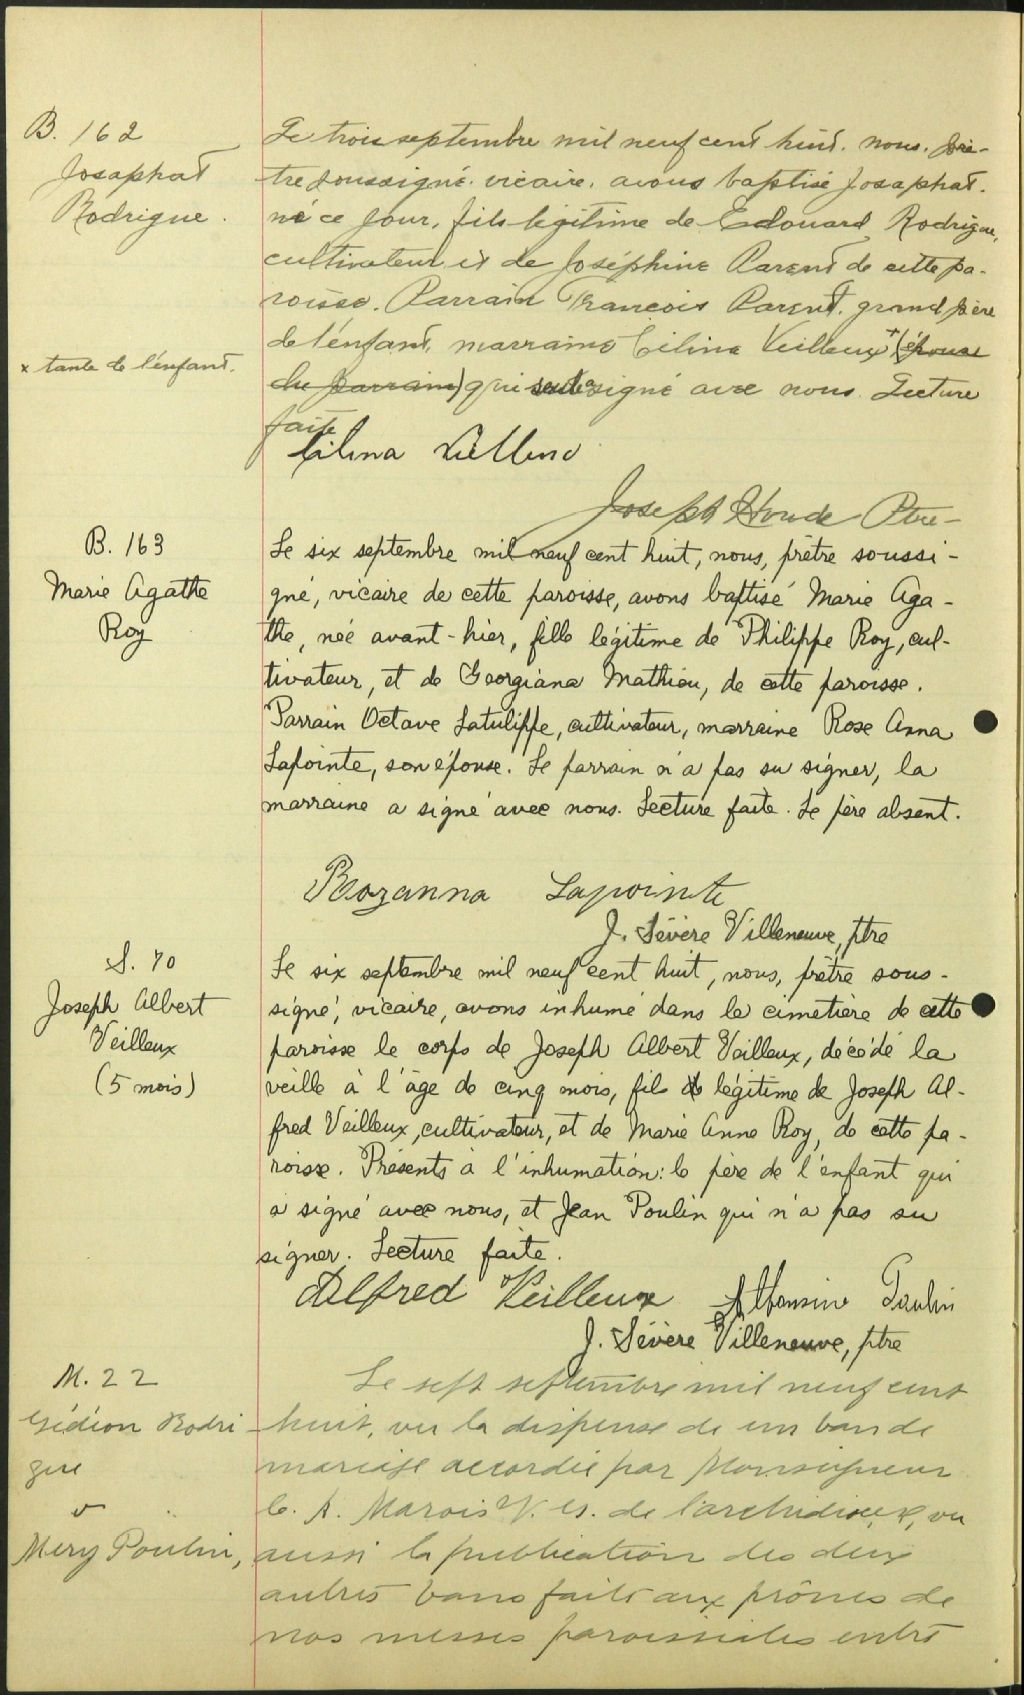 B. 162
Josaphat
Rodrigue.
Le trois septembre mil neuf cent huit. nous. prê-
tre soussigné. vicaire. avons baptisé Josaphat.
né ce jour, fils légitime de Edouard Rodrigue,
cultivateur et de Joséphine Parent de cette pa-
roisse. Parrain François Parent, grand père
de l'enfant, marraine Célina Veilleux + (épouse
x tante de l'enfant.
du parrain) qui seule a signé avec nous. Lecture
faite
Célina
Joseph Houde Ptre
B. 163
Marie Agathe
Roy
Le six septembre mil neuf cent huit, nous, prêtre soussi-
gné, vicaire de cette paroisse, avons baptisé Marie Aga-
the, née avant-hier, fille légitime de Philippe Roy, cul-
tivateur, et de Georgiana Mathieu, de cette paroisse.
Parrain Octave Latulippe, cultivateur, marraine Rose Anna
Lapointe, son épouse. Le parrain n'a pas su signer, la
marraine a signé avec nous. Lecture faite. Le père absent.
Rozanna Lapointe
J. Sévère Villeneuve, ptre
S. 70
Joseph Albert
Veilleux
(5 mois)
Le six septembre mil neuf cent huit, nous, prêtre sous-
signé, vicaire, avons inhumé dans le cimetière de cette
paroisse le corps de Joseph Albert Veilleux, décédé la
veille à l'âge de cinq mois, fils légitime de Joseph Al-
fred Veilleux, cultivateur, et de Marie Anne Roy, de cette pa-
roisse. Présents à l'inhumation: le père de l'enfant qui
a signé avec nous, et Jean Poulin qui n'a pas su
signer. Lecture faite.
Alfred Veilleux Alfonsine Poulin
J. Sévère Villeneuve, ptre
M. 22
Gédéon Rodri
gue
Mery Poulin,
Le sept septembre mil neuf cent
huit, vu la dispense de un ban de
mariage accordée par Monseigneur
C. A. Marois V. G. de l'archidiocèse, vu
aussi la publication des deux
autres bans faite aux prônes de
nos messes paroissiales entre